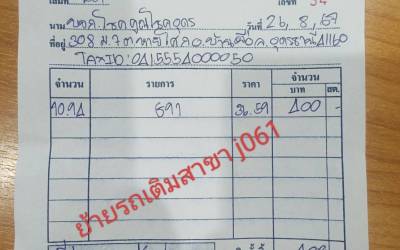 เลขที่ 34
นาม บจก.โชคคูณโชคอุดร วันที่ 26, 8, 67
ที่อยู่ 308 ม.7 ต. อ.บ้านผือ จ.อุดรธานี 41160
TAXID: 0415554000050
จำนวน รายการ ราคา จำนวน
บาท สต.
10.94 36.59 400 -
ย้ายรถเติมสาขา j061